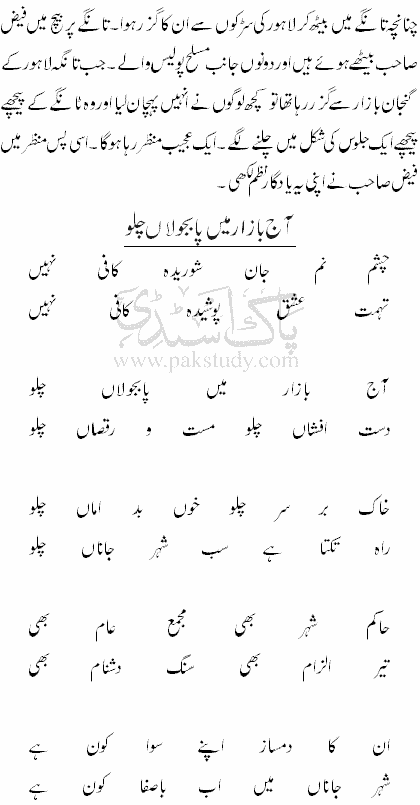 چنانچہ تانگے میں بیٹھ کر لاہور کی سڑکوں سے ان کا گزر ہوا۔ تانگے پر بیچ میں فیض
صاحب بیٹھے ہوئے ہیں اور دونوں جانب مسلح پولیس والے۔ جب تانگہ لاہور کے
گنجان بازار سے گزر رہا تھا تو کچھ لوگوں نے انہیں پہچان لیا اور وہ تانگے کے پیچھے
پیچھے ایک جلوس کی شکل میں چلنے لگے۔ ایک عجیب منظر رہا ہوگا۔ اسی پس منظر میں
فیض صاحب نے اپنی یہ یادگار نظم لکھی ۔
آج بازار میں پا بجولاں چلو
چشم نم جان شوریدہ کافی نہیں
تہمت عشق پوشیدہ کافی نہیں
پاک اسٹڈی
www.pakstudy.com
آج بازار میں پابجولاں چلو
دست افشاں چلو مست و رقصاں چلو
خاک بر سر چلو خوں بد اماں چلو
راہ تکتا ہے سب شہر جاناں چلو
حاکم شہر بھی مجمع عام بھی
تیر الزام بھی سنگ دشنام بھی
ان کا دمساز اپنے سوا کون ہے
شہر جاناں میں اب باصفا کون ہے